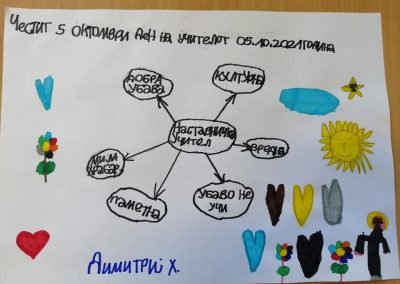 Честит 5 октомври ден на учителот 05.10.2021година
добра
убава
културна
наставничка
учител
вредна
мила
паметна
убаво не
учи
Димитриј Х.